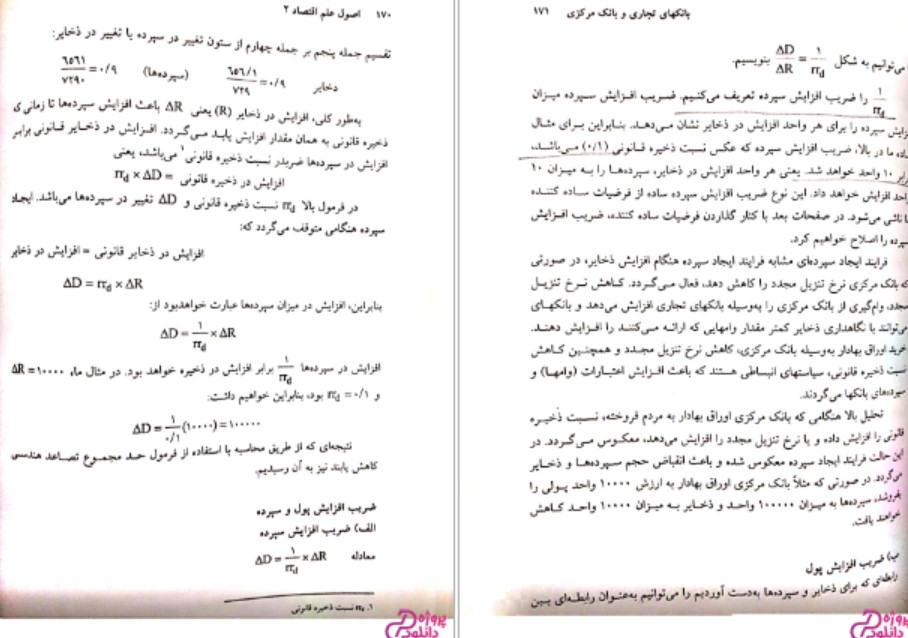 ۱۷۰ اصول علم اقتصاد ۲
تقسیم جمله پنجم بر جمله چهارم از ستون تغییر در سپرده یا تغییر در ذخایر:
ذخایر ۶۵۶/۱ / ۷۲۹ = ۰/۹ (سپرده‌ها) ۶۵۶۱ / ۷۲۹۰ = ۰/۹
به‌طور کلی، افزایش در ذخایر (R) یعنی ΔR باعث افزایش سپرده‌ها تا زمانی‌ که
ذخیره قانونی به همان مقدار افزایش یابد می‌گردد. افزایش در ذخایر قانونی برابر
افزایش در سپرده‌ها ضربدر نسبت ذخیره قانونی¹ می‌باشد، یعنی
افزایش در ذخیره قانونی = rrd × ΔD
در فرمول بالا rrd نسبت ذخیره قانونی و ΔD تغییر در سپرده‌ها می‌باشد. ایجاد
سپرده هنگامی متوقف می‌گردد که:
افزایش در ذخایر قانونی = افزایش در ذخایر
ΔD = rrd × ΔR
بنابراین، افزایش در میزان سپرده‌ها عبارت خواهدبود از:
ΔD = 1/rrd × ΔR
افزایش در سپرده‌ها 1/rrd برابر افزایش در ذخیره خواهد بود. در مثال ما، ΔR = ۱۰۰۰۰
و rrd = ۰/۱ بود، بنابراین خواهیم داشت:
ΔD = ۱/۰/۱ (۱۰۰۰۰) = ۱۰۰۰۰۰
نتیجه‌ای که از طریق محاسبه با استفاده از فرمول حد مجموع تصاعد هندسی
کاهش یابند نیز به آن رسیدیم.
ضریب افزایش پول و سپرده
الف) ضریب افزایش سپرده
معادله ΔD = 1/rrd × ΔR
۱. rrd نسبت ذخیره قانونی
بانکهای تجاری و بانک مرکزی ۱۷۱
می‌توانیم به شکل ΔD/ΔR = 1/rrd بنویسیم.
1/rrd را ضریب افزایش سپرده تعریف می‌کنیم. ضریب افزایش سپرده میزان
افزایش سپرده را برای هر واحد افزایش در ذخایر نشان می‌دهد. بنابراین برای مثال
ساده ما در بالا، ضریب افزایش سپرده که عکس نسبت ذخیره قانونی (۰/۱) می‌باشد،
برابر ۱۰ واحد خواهد شد. یعنی هر واحد افزایش در ذخایر، سپرده‌ها را به میزان ۱۰
واحد افزایش خواهد داد. این نوع ضریب افزایش سپرده ساده از فرضیات ساده کننده
ما ناشی می‌شود. در صفحات بعد با کنار گذاردن فرضیات ساده کننده، ضریب افزایش
سپرده را اصلاح خواهیم کرد.
فرایند ایجاد سپرده‌ای مشابه فرایند ایجاد سپرده هنگام افزایش ذخایر، در صورتی
که بانک مرکزی نرخ تنزیل مجدد را کاهش دهد، فعال می‌گردد. کاهش نرخ تنزیل
مجدد، وام‌گیری از بانک مرکزی را به‌وسیله بانکهای تجاری افزایش می‌دهد و بانکهای
می‌توانند با نگاهداری ذخایر کمتر مقدار وامهایی که ارائه می‌کنند را افزایش دهند.
خرید اوراق بهادار به‌وسیله بانک مرکزی، کاهش نرخ تنزیل مجدد و همچنین کاهش
نسبت ذخیره قانونی، سیاستهای انبساطی هستند که باعث افزایش اعتبارات (وامها) و
سپرده‌های بانکها می‌گردند.
تحلیل بالا هنگامی که بانک مرکزی اوراق بهادار به مردم فروخته، نسبت ذخیره
قانونی را افزایش داده و یا نرخ تنزیل مجدد را افزایش می‌دهد، معکوس می‌گردد. در
این حالت فرایند ایجاد سپرده معکوس شده و باعث انقباض حجم سپرده‌ها و ذخایر
می‌گردد. در صورتی که مثلاً بانک مرکزی اوراق بهادار به ارزش ۱۰۰۰۰ واحد پولی را
بفروشد، سپرده‌ها به میزان ۱۰۰۰۰۰ واحد و ذخایر به میزان ۱۰۰۰۰ واحد کاهش
خواهند یافت.
ب) ضریب افزایش پول
رابطه‌ای که برای ذخایر و سپرده‌ها به‌دست آوردیم را می‌توانیم به‌عنوان رابطه‌ای بین
پروژه دانلود
پروژه دانلود